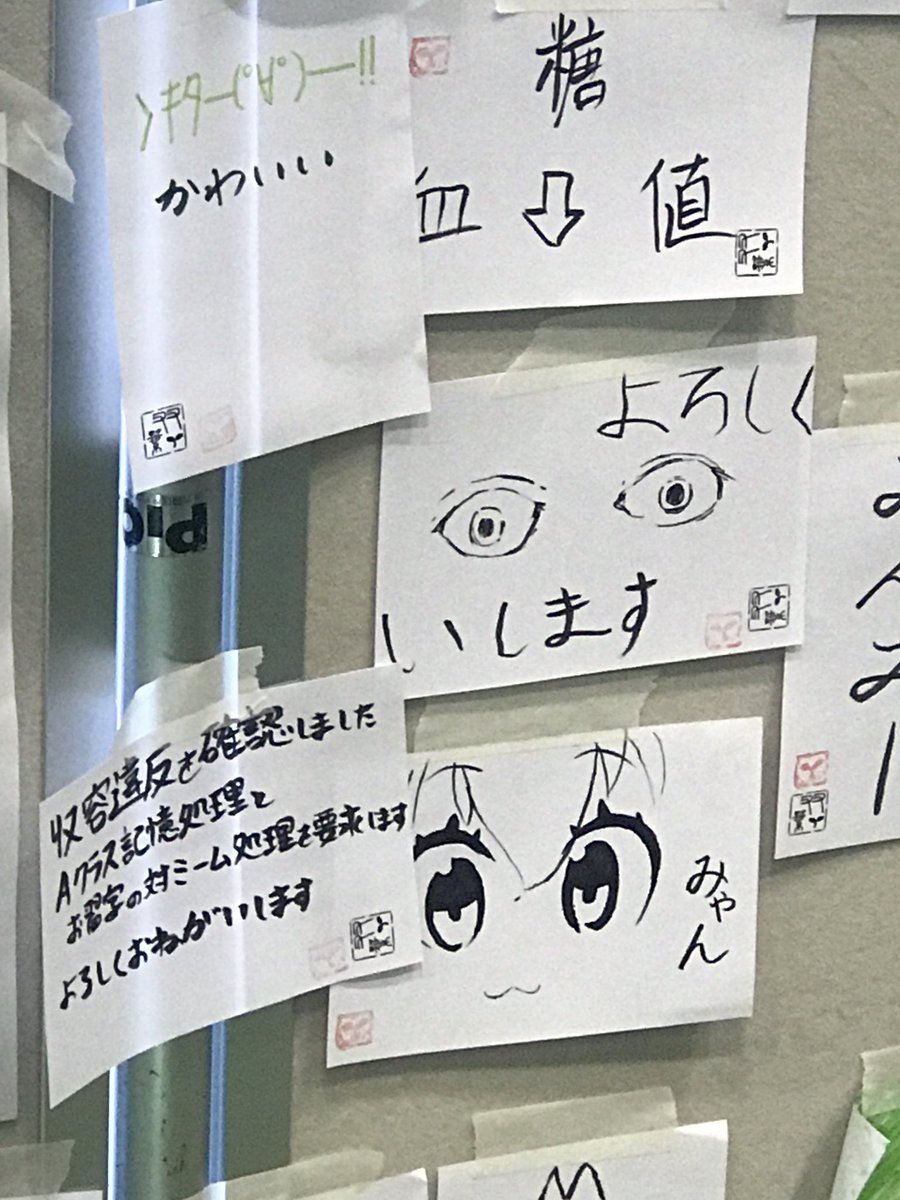 ｷﾀ━(ﾟ∀ﾟ)━!!
かわいい
糖
血⇩値
よろしく
いします
収容違反を確認しました
Aクラス記憶処理と
お習字の対ミーム処理を要求します
よろしくおねがいします
みゃん
双葉
双葉
双葉
双葉
双葉